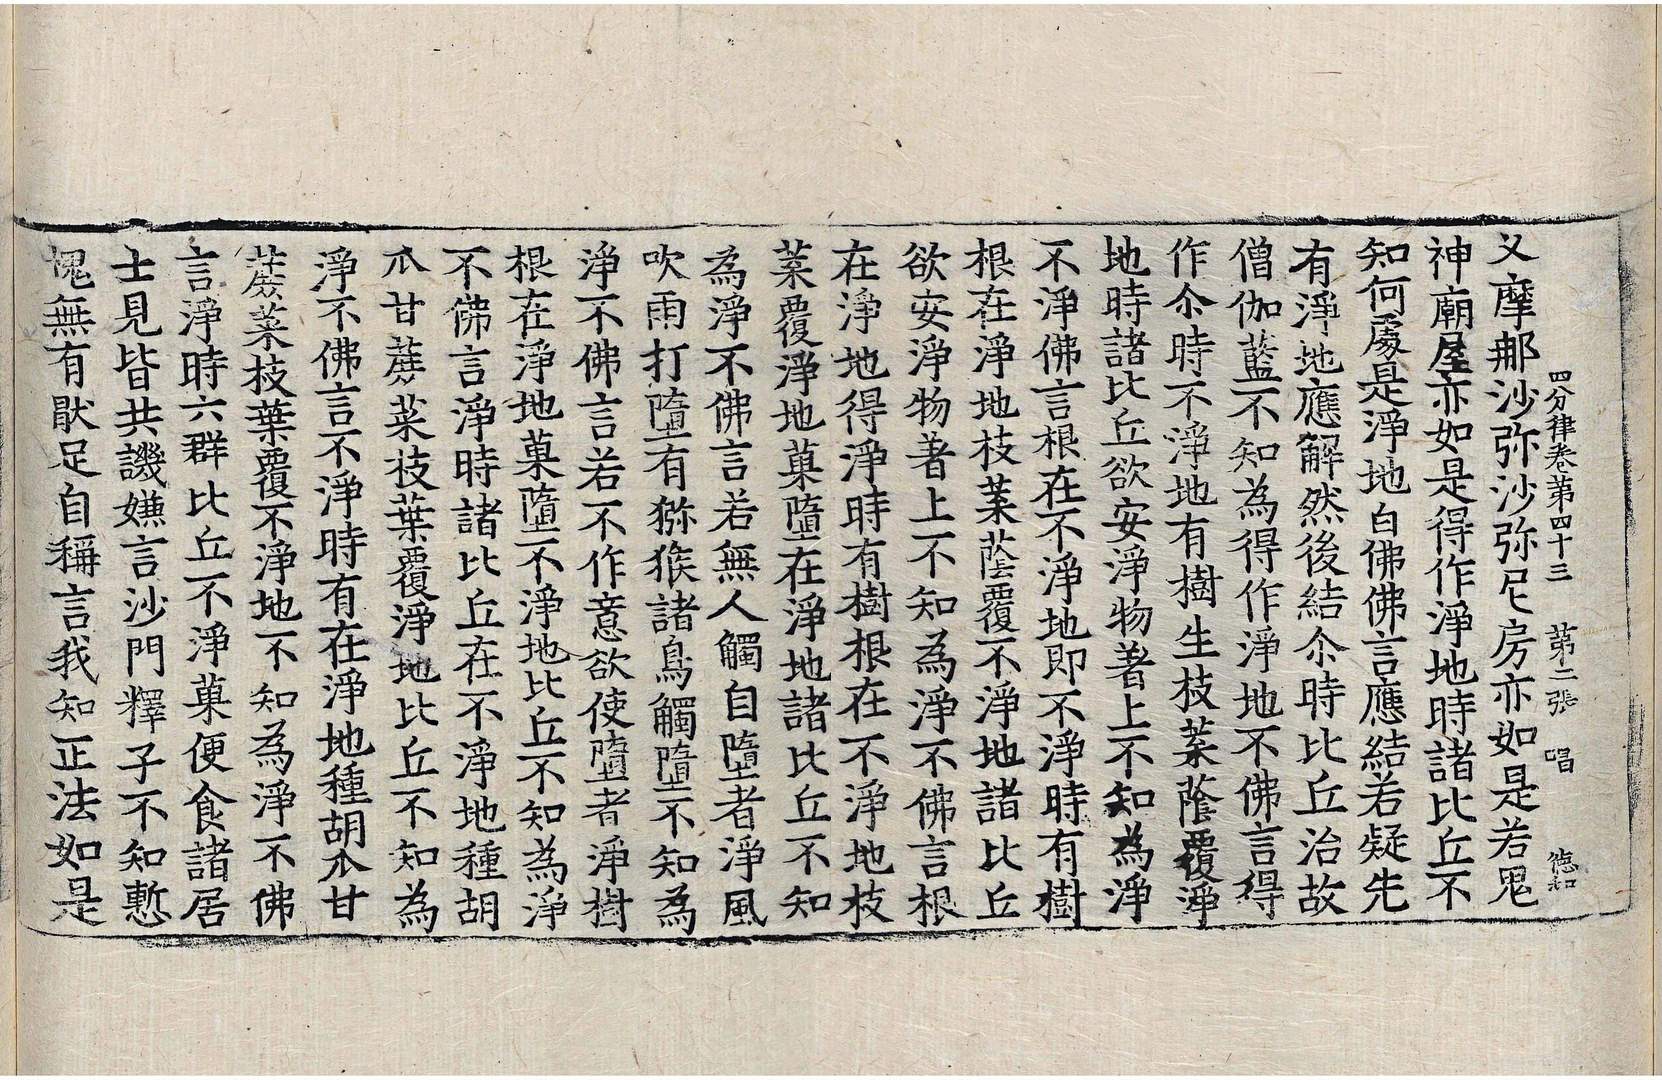 四分律卷第四十三 第二張 唱 德和
叉摩那沙弥沙弥尼房亦如是若鬼
神廟屋亦如是得作淨地時諸比丘不
知何處是淨地白佛佛言應結若疑先
有淨地應解然後結尒時比丘治故
僧伽藍不知為得作淨地不佛言得
作尒時不淨地有樹生枝葉蔭覆淨
地時諸比丘欲安淨物著上不知為淨
不淨佛言根在不淨地即不淨時有樹
根在淨地枝葉蔭覆不淨地諸比丘
欲安淨物著上不知為淨不佛言根
在淨地得淨時有樹根在不淨地枝
葉覆淨地菓墮在淨地諸比丘不知
為淨不佛言若無人觸自墮者淨風
吹雨打墮有獼猴諸鳥觸墮不知為
淨不佛言若不作意欲使墮者淨樹
根在淨地菓墮不淨地比丘不知為淨
不佛言淨時諸比丘在不淨地種胡
瓜甘蔗菜枝葉覆淨地比丘不知為
淨不佛言不淨時有在淨地種胡瓜甘
蔗菜枝葉覆不淨地不知為淨不佛
言淨時六群比丘不淨菓便食諸居
士見皆共譏嫌言沙門釋子不知慙
愧無有猒足自稱言我知正法如是